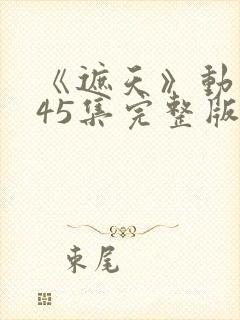 《遮天》動
45集完整版
束尾